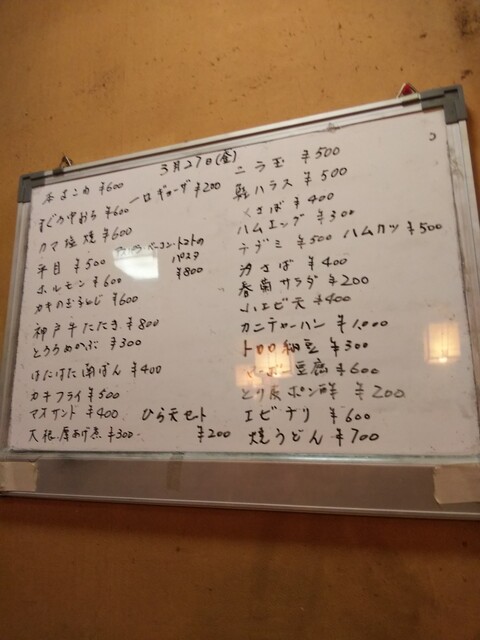 3月27日(金)
本まぐろ ¥600
一口ギョーザ ¥200
¥600
カマ塩焼 ¥600
平目 ¥500
ベーコン・トマトの
パスタ
¥800
ホルモン ¥600
¥600
神戸牛たたき ¥800
¥300
はたはた南ばん ¥400
カキフライ ¥500
マスサンド ¥400
ひら天セット
¥200
大根厚あげ煮 ¥300
ニラ玉 ¥500
ハラス ¥500
くさば ¥400
ハムエッグ ¥300
¥500 ハムカツ ¥500
さば ¥400
春菊サラダ ¥200
小エビ天 ¥400
カニチャーハン ¥1,000
トロロ納豆 ¥300
マーボー豆腐 ¥600
とり皮ポン酢 ¥200
エビチリ ¥600
焼うどん ¥700